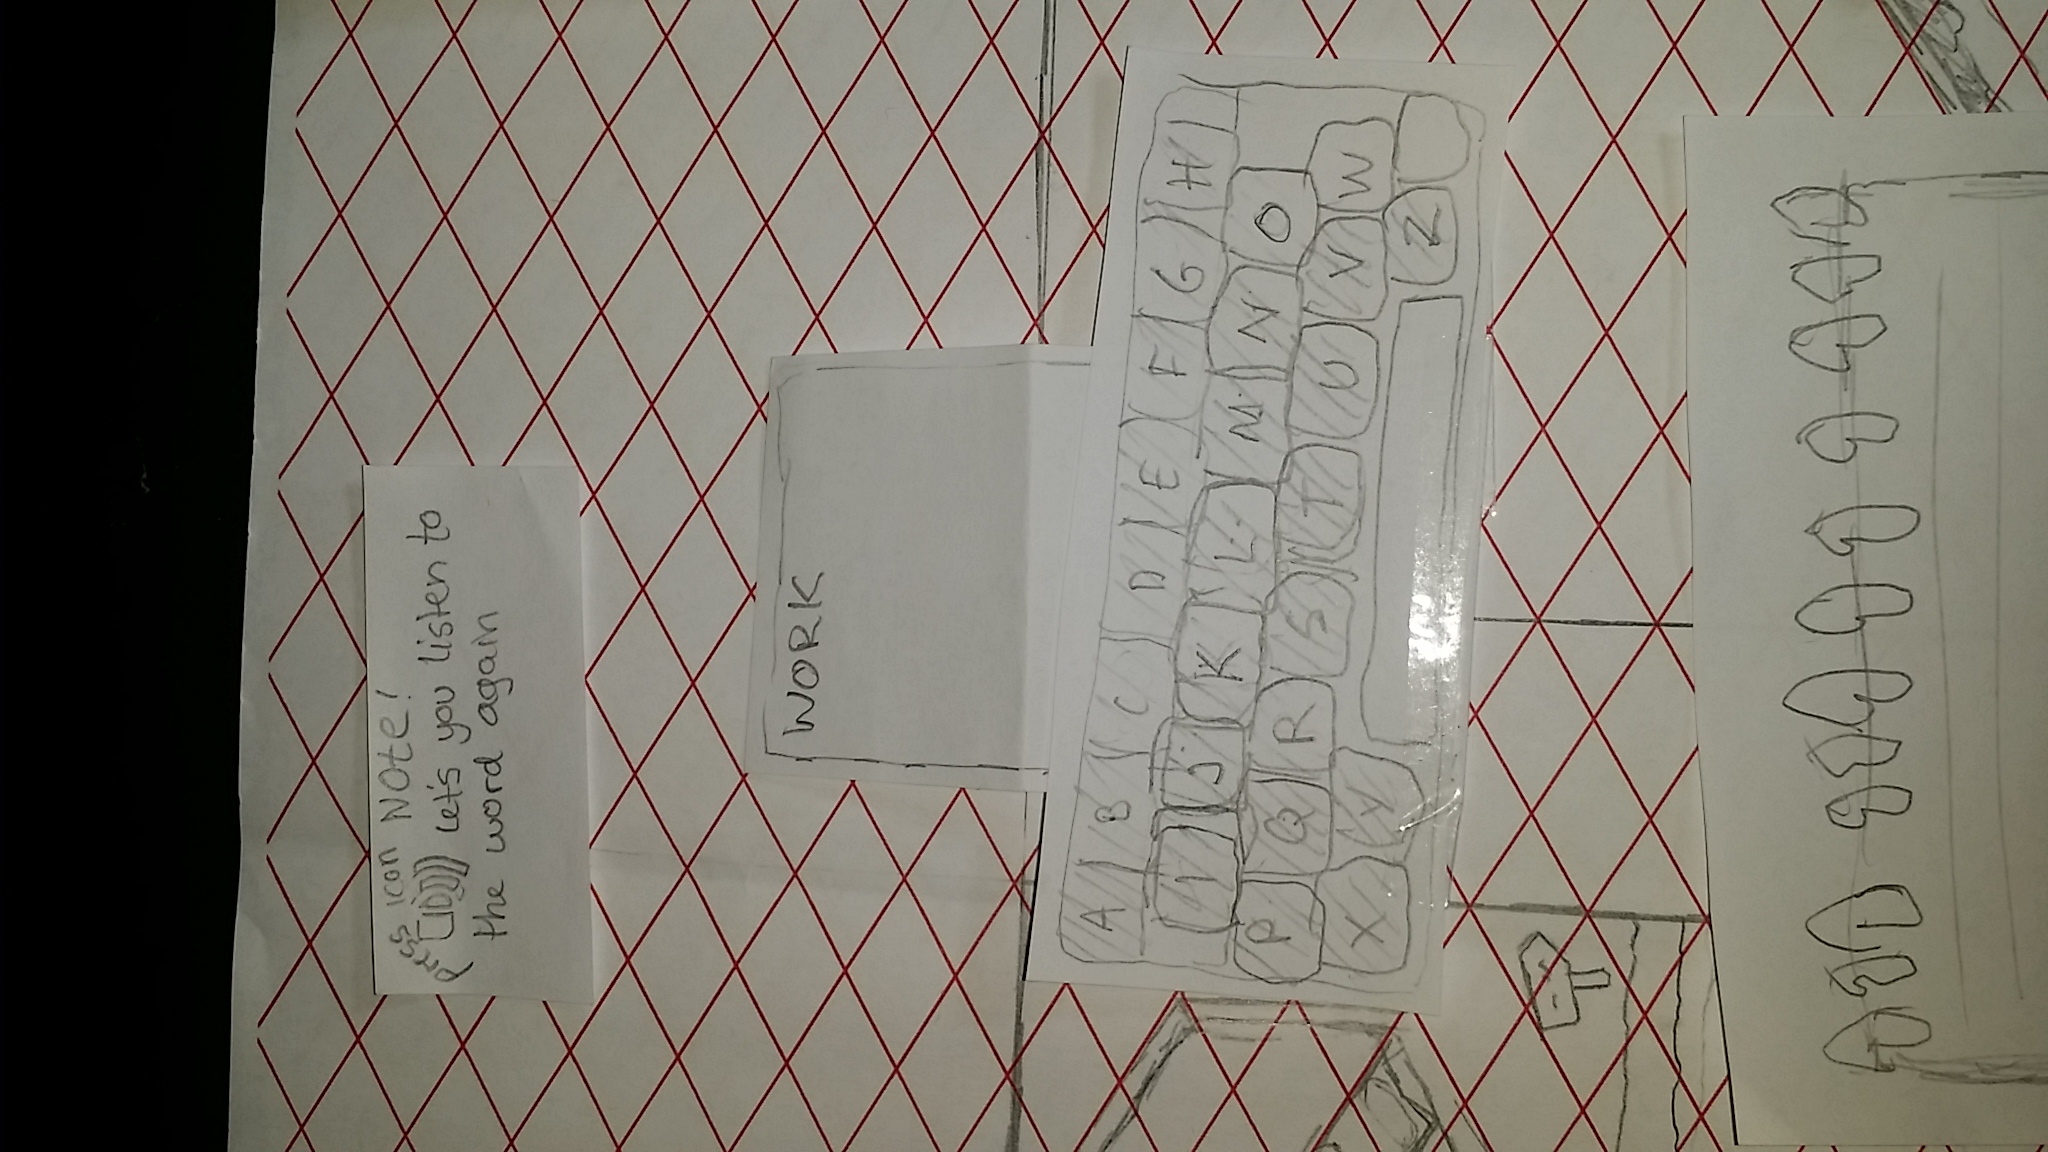 NOte!
press icon let's you listen to
the word again
WORK
A B C D E F G H
I J K L M N O
P Q R S T U V W
X Y Z